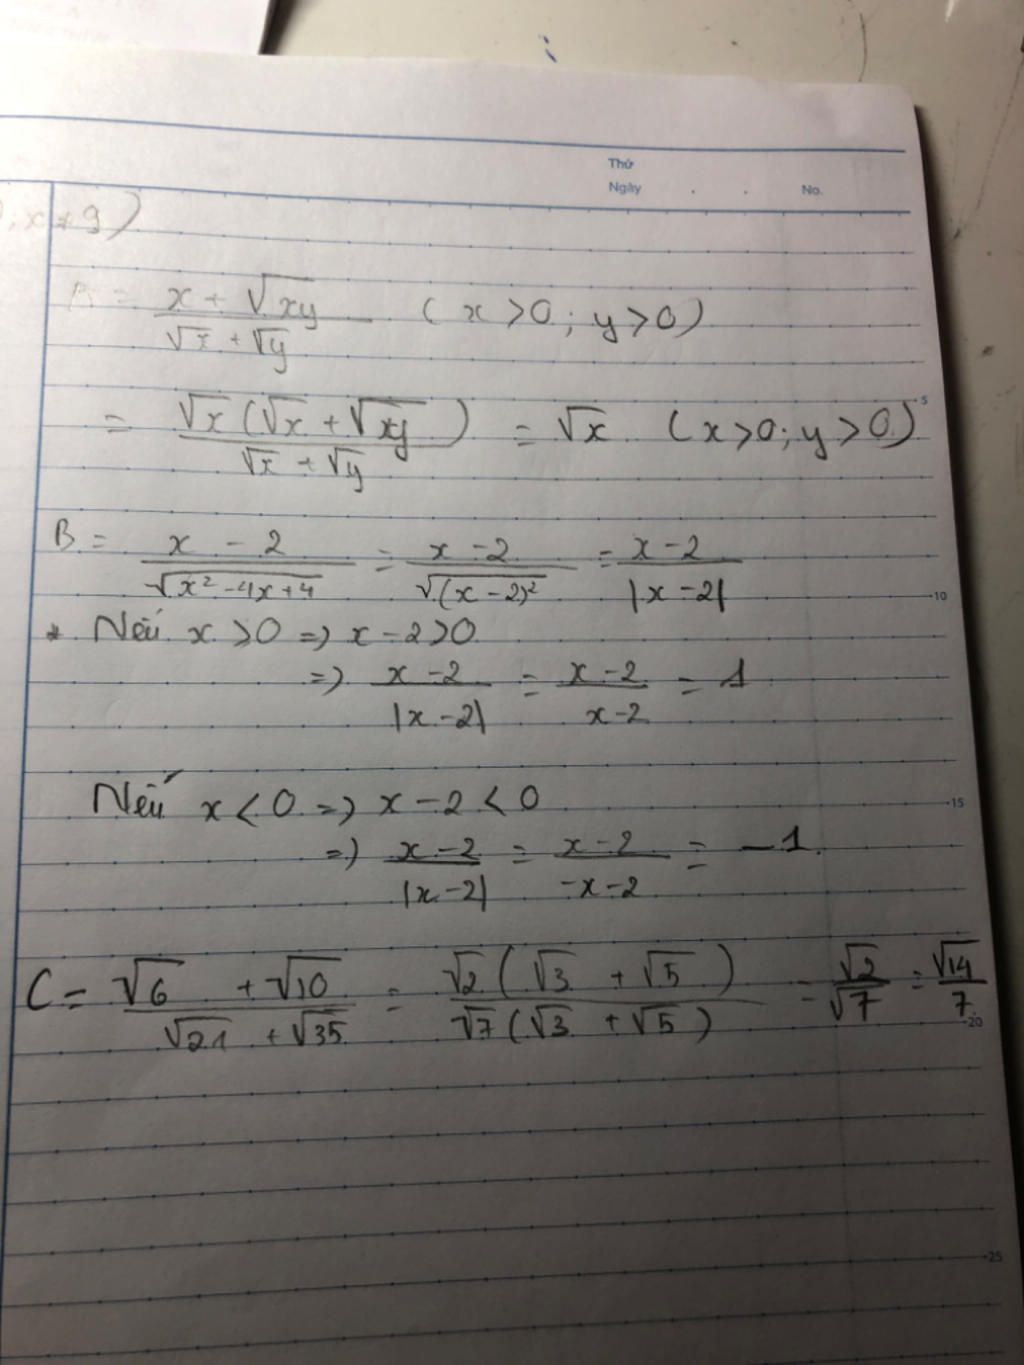 Thứ
Ngày . . No.
; x ≠ 9)
A = \frac{x + \sqrt{xy}}{\sqrt{x} + \sqrt{y}} (x > 0; y > 0)
= \frac{\sqrt{x}(\sqrt{x} + \sqrt{xy})}{\sqrt{x} + \sqrt{y}} = \sqrt{x} (x > 0; y > 0)
5
B = \frac{x - 2}{\sqrt{x² - 4x + 4}} = \frac{x - 2}{\sqrt{(x - 2)²}} = \frac{x - 2}{|x - 2|}
10
* Nếu x ⩾ 0 => x - 2 > 0
=> \frac{x - 2}{|x - 2|} = \frac{x - 2}{x - 2} = 1
Nếu x < 0 => x - 2 < 0
15
=> \frac{x - 2}{|x - 2|} = \frac{x - 2}{-x - 2} = -1.
C = \frac{\sqrt{6} + \sqrt{10}}{\sqrt{21} + \sqrt{35}} = \frac{\sqrt{2}(\sqrt{3} + \sqrt{5})}{\sqrt{7}(\sqrt{3} + \sqrt{5})} = \frac{\sqrt{2}}{\sqrt{7}} = \frac{\sqrt{14}}{7}
20
25